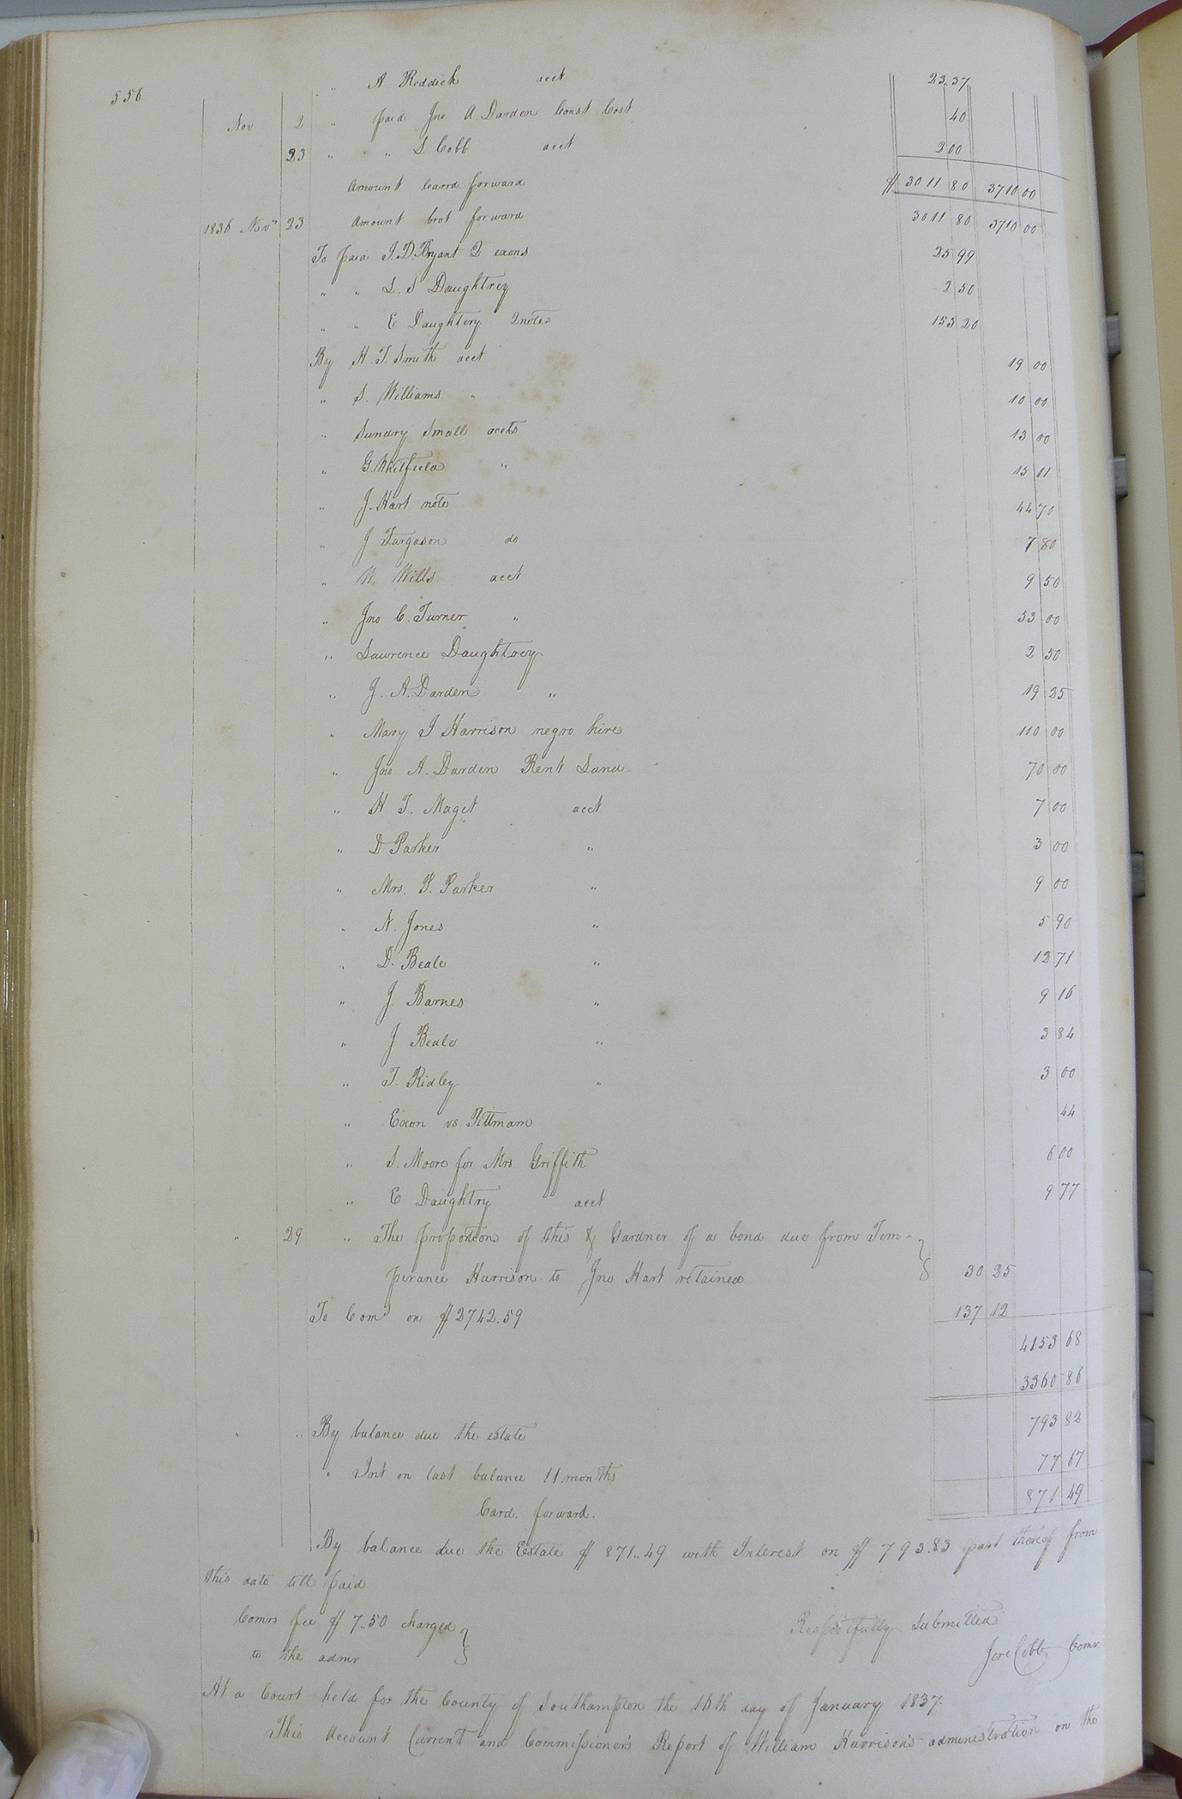 556
" " A Riddick acct 23.37
Nov 2 " paid Jno A. Darden Const Cost 40
23 " " S Cobb acct 2 00
Amount Carrd forward $ 3011 80 3710 00
1836 Novr 23 Amount brot forward 3011 80 3710 00
To paid J. D. Bryant 2 exons 25 99
" " L. S Daughtrey 2 50
" " E Daughtery 2 notes 153 20
By H T Smith acct 19 00
" S. Williams " 10 00
" Sundry Small accts 13 00
" G. Whitfield " 15 11
" J. Hart note 44 70
" J Fargason do 7 80
" W. Wills acct 9 50
" Jno C. Turner " 53 00
" Lawrence Daughtrey 2 50
" J. A. Darden " 19 25
" Mary T Harrison negro hire 110 00
" Jno A. Darden Rent Land 70 00
" H T. Maget acct 7 00
" D Parker " 3 00
" Mrs. P. Parker " 9 00
" N. Jones " 5 90
" D. Beale " 12 71
" J. Barnes " 9 16
" J Beale " 3 84
" T. Ridley " 3 00
" Exon vs Pittmam 44
" S. Moore for Mrs Griffith 6 00
" E Daughtry acct 9 77
" 29 " The proportion of this & Gardner of a bond due from Tem-
perance Harrison to Jno Hart retained 30 25
To Comd on $ 2742.59 137 12
4153 68
3360 86
" By balance due the estate 793 82
" Int on last balance 11 months 77 67
Card. forward. 871 49
By balance due the Estate $ 871..49 with Interest on $ 793.83 part thereof from
this date till paid
Comrs fee $ 7.50 charged
to the admr
Respectfully Submitted
Jere Cobb, Comr
At a Court held for the County of Southampton the 16th day of January 1837.
This Account Current and Commissioners Report of William Harrison's administration on the